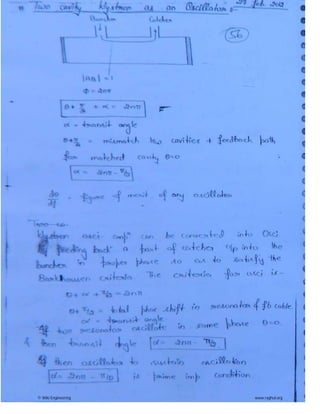 27 feb. 2013
* Two cavity klystron as an Oscillator :-
Buncher Catcher
56
|Aβ| = 1
ϕ = 2nπ
θ + π/2 + α = 2nπ
α - transit angle
θ+π/2 = mismatch b/w cavities + feedback path
for matched cavity θ=0
α = 2nπ - π/2
- figure of merit of any oscillator
Klystron osci. ampr can be converted into Osci.
feeding back a part of catcher o/p into the
buncher in proper phase so as to satisfy the
Barkhausen criteria. The criteria for osci is -
θ + α + π/2 = 2nπ
θ+ π/2 = total phase shift in resonator & fb cable
α = transit angle
If two resonator oscillate in same phase θ=0.
& then transit angle α = 2nπ - π/2
If then oscillator to sustain oscillation
α = 2nπ - π/2 is prime imp condition
© Wiki Engineering www.raghul.org